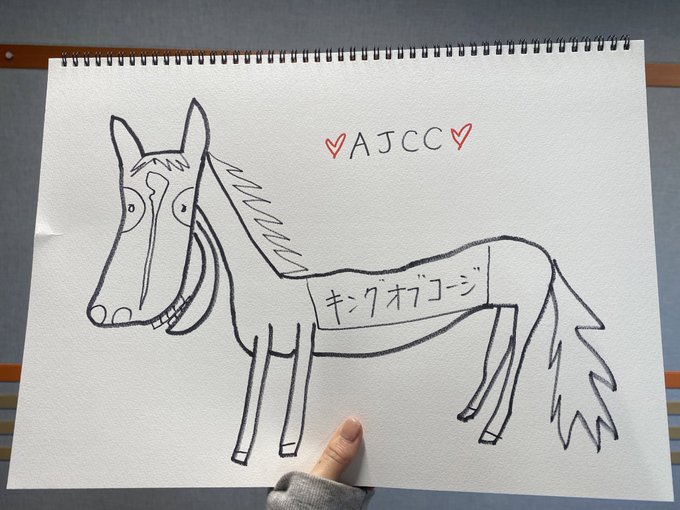 ♥AJCC♥
キングオブコージ